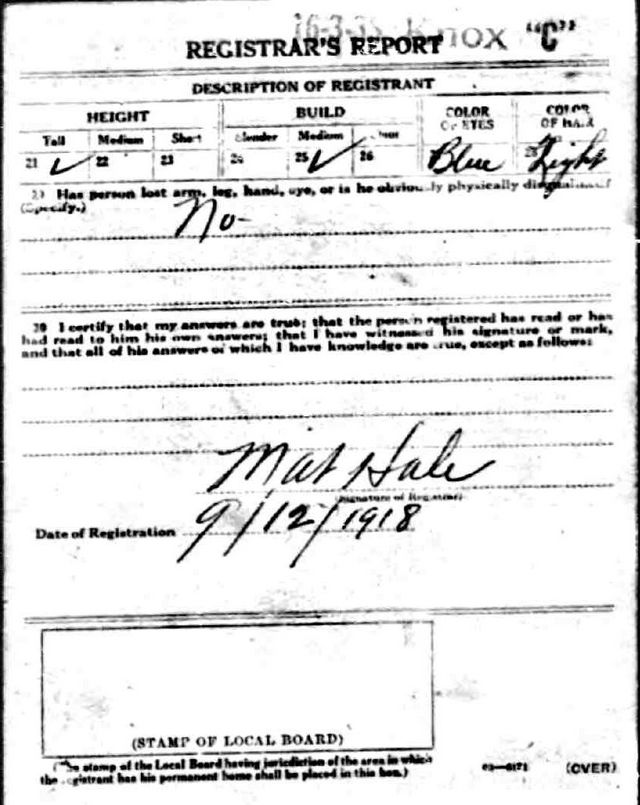 16-3-35 Knox "C"
REGISTRAR'S REPORT
DESCRIPTION OF REGISTRANT
HEIGHT BUILD COLOR OF EYES COLOR OF HAIR
Tall Medium Short Slender Medium Stout
21 ✓ 22 23 24 25 ✓ 26 Blue 28 Light
29 Has person lost arm, leg, hand, eye, or is he obviously physically disqualified?
(Specify.)
No-
30 I certify that my answers are true; that the person registered has read or has
had read to him his own answers; that I have witnessed his signature or mark,
and that all of his answers of which I have knowledge are true, except as follows:
Mat Hale
(Signature of Registrar)
Date of Registration 9/12/1918
(STAMP OF LOCAL BOARD)
(The stamp of the Local Board having jurisdiction of the area in which
the registrant has his permanent home shall be placed in this box.)
03-6171 (OVER)